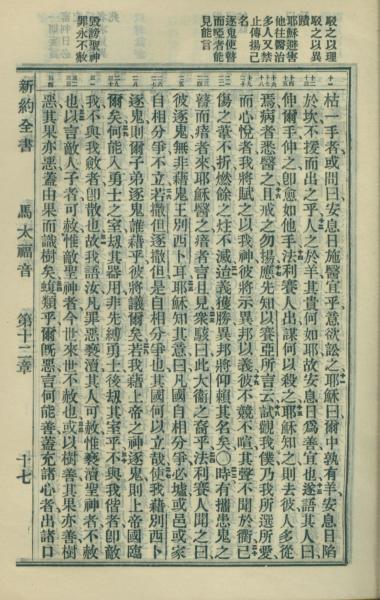 駁之以理
駁之以異
蹟
耶穌避害
他往醫治
多人又禁
止傳揚己
名
逐鬼使瞽
而啞者能
見能言
毀謗聖神
罪永不赦
枯一手者或問曰安息日施醫宜乎意欲訟之耶穌曰爾中孰有羊安息日陷
於坎不援而出之乎人之於羊其貴何如耶故安息日為善宜也遂語其人曰
伸爾手伸之即愈如他手法利賽人出謀何以殺之耶穌知之則去彼人多從
焉病者悉醫之且戒之勿揚應先知以賽亞所言云試觀我僕乃我所選所愛
而心悅者我將賦之以我神彼將示異邦以義彼不競不喧其聲不聞於衢已
傷之葦不折燃餘之炷不滅迨義獲勝異邦將仰賴其名矣〇時有攜患鬼之
瞽而瘖者來耶穌醫之瘖者言且見衆駭曰此大衛之裔乎法利賽人聞之曰
彼逐鬼無非藉鬼王別西卜耳耶穌知其意曰凡國自相分爭必墟或邑或家
自相分爭不立若撒但逐撒但是自相分爭也其國何以立哉使我藉別西卜
逐鬼則爾子弟逐鬼誰藉乎彼將議爾矣若我藉上帝之神逐鬼則上帝國臨
爾矣何能入勇士之室刼其器用非先縛勇士後刼其室乎不與我偕者即敵
我不與我斂者即散也故我語汝凡罪惡褻瀆其人可赦惟褻瀆聖神者不赦
也以言敵人子者可赦惟敵聖神者今世來世不赦也或以樹善其果亦善樹
惡其果亦惡蓋由果而識樹矣蝮類乎爾旣惡言何能善蓋充諸心者出諸口
新約全書 馬太福音 第十二章 十七